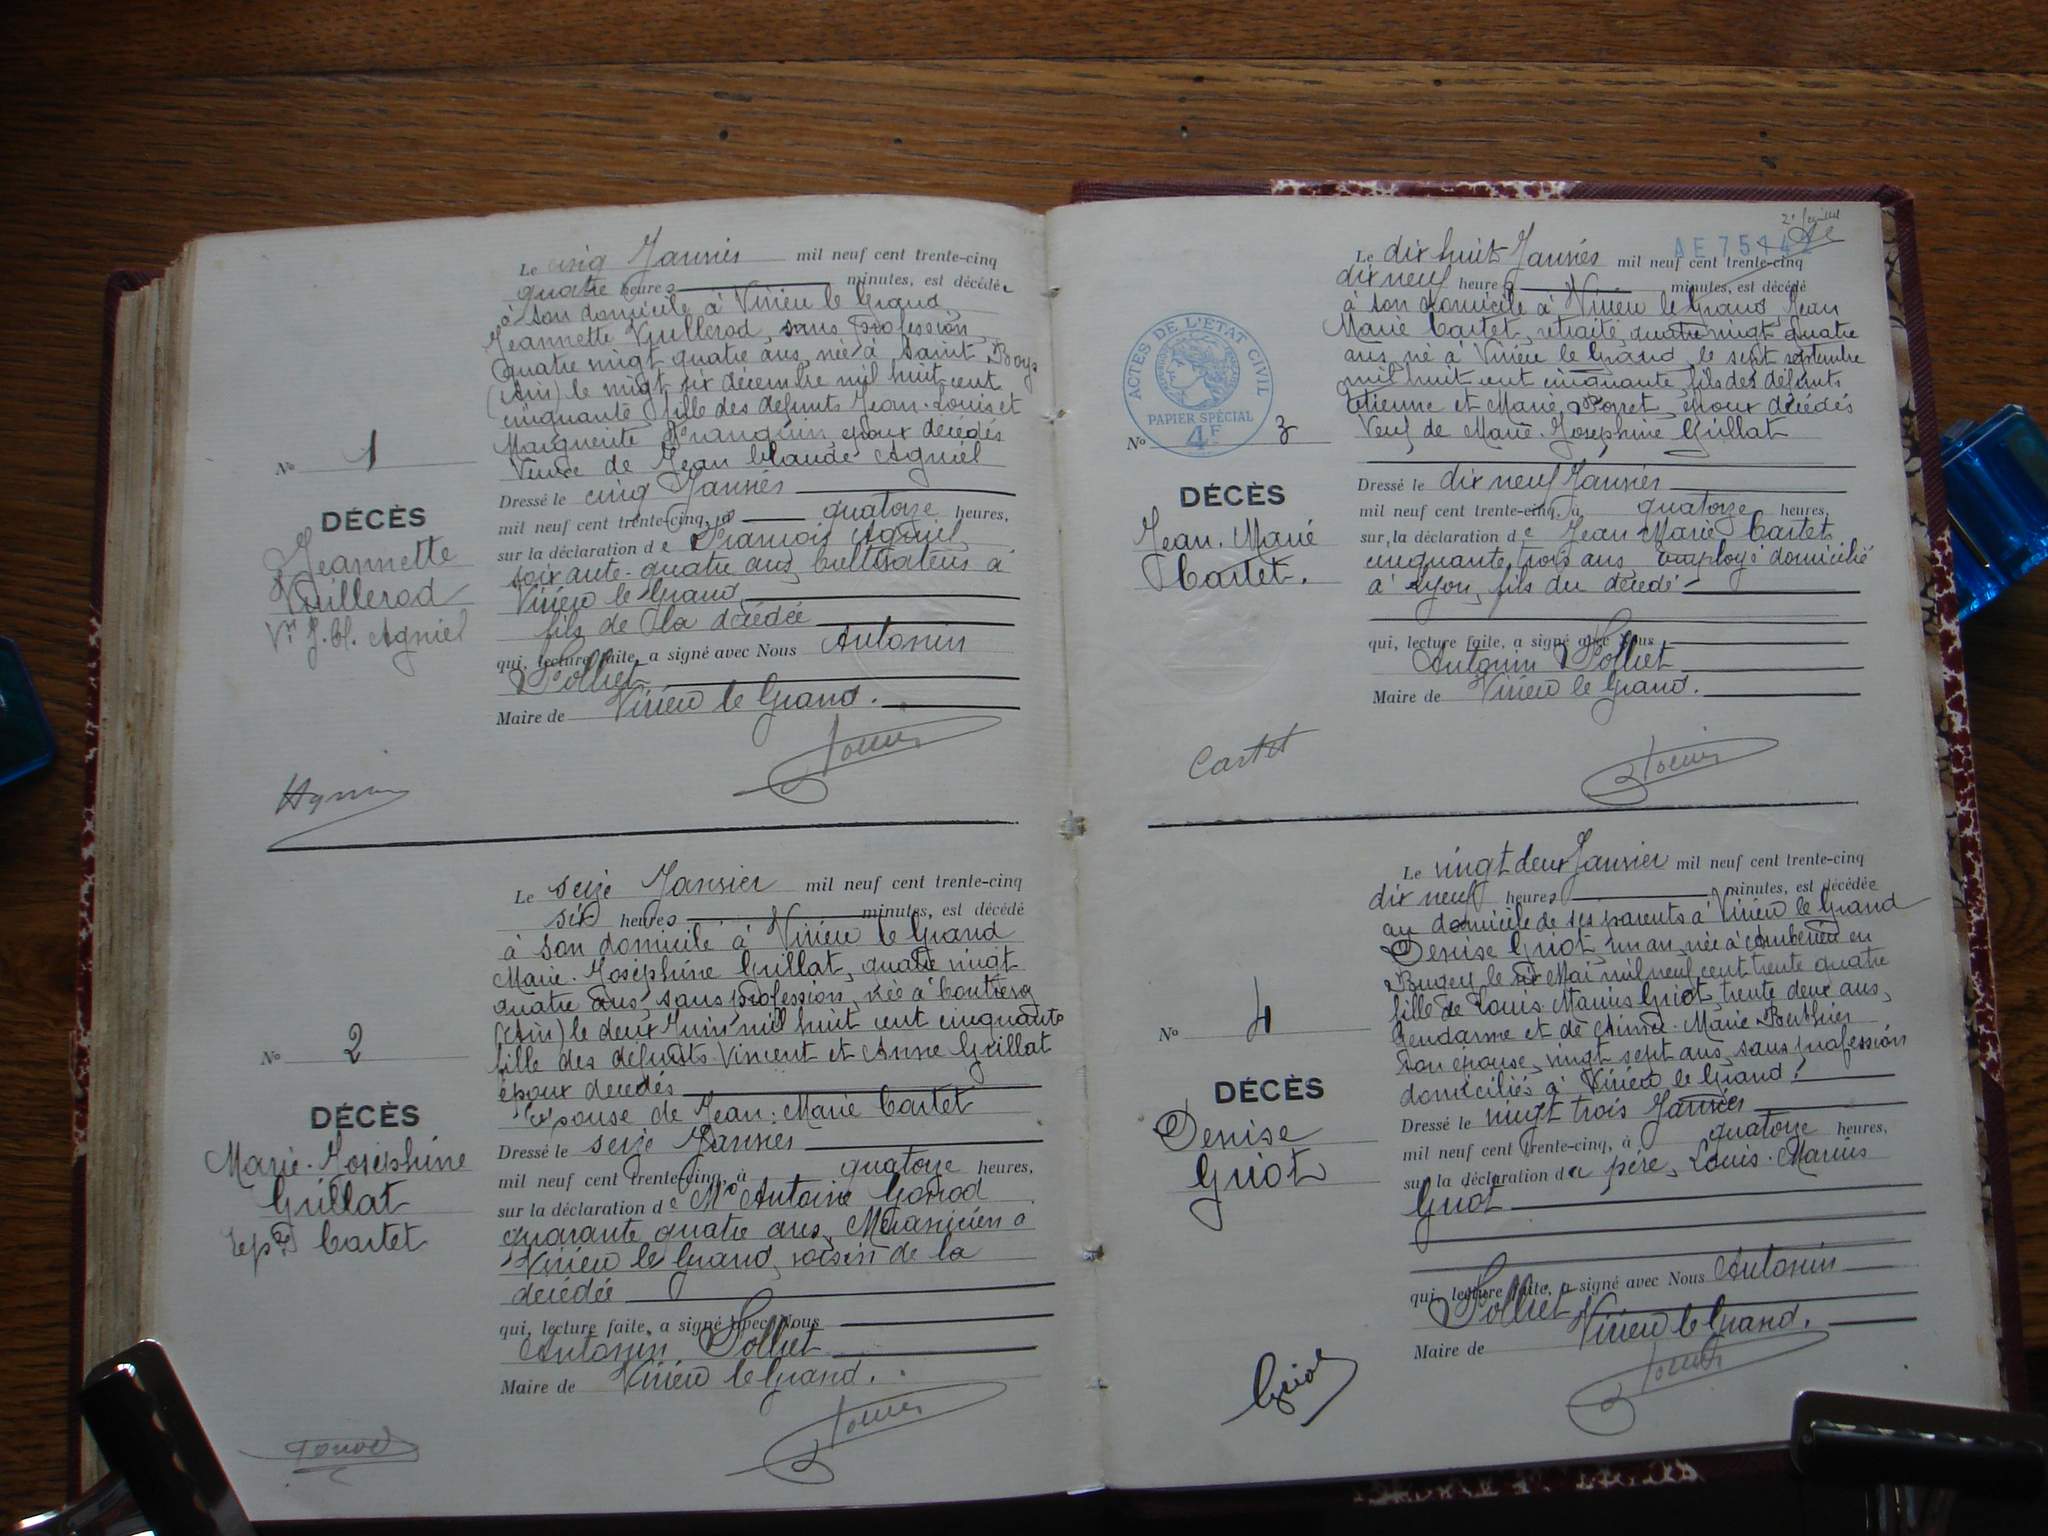 Le cinq Janvier mil neuf cent trente-cinq
quatre heures minutes, est décédée
à son domicile à Virieu le Grand
Jeannette Vuillerod, sans profession,
quatre vingt quatre ans, née à Saint Boys
(Ain) le vingt six décembre mil huit cent
cinquante, fille des défunts Jean-Louis et
Marguerite époux décédés
Veuve de Jean Claude Agniel
Nº 1
DÉCÈS
Jeannette
Vuillerod
Vve J. Cl. Agniel
Dressé le cinq Janvier
mil neuf cent trente-cinq, à quatorze heures,
sur la déclaration de François Agniel
soixante-quatre ans, cultivateur à
Virieu le Grand,
fils de la décédée
qui, lecture faite, a signé avec Nous Antonin
Polliet
Maire de Virieu le Grand.
Le seize Janvier mil neuf cent trente-cinq
six heures minutes, est décédé
à son domicile à Virieu le Grand
Marie-Joséphine Grillat, quatre vingt
quatre ans, sans profession, née à Contrevoz
(Ain) le deux Juin mil huit cent cinquante
fille des défunts Vincent et Anne Grillat
époux décédés
Epouse de Jean-Marie Cartet
Nº 2
DÉCÈS
Marie-Joséphine
Grillat
Cartet
Dressé le seize Janvier
mil neuf cent trente-cinq, à quatorze heures,
sur la déclaration de Mr Antoine Gonod
quarante quatre ans, Mécanicien à
Virieu le Grand, voisin de la
décédée
qui, lecture faite, a signé avec Nous
Antonin Polliet
Maire de Virieu le Grand.
Gonod
2e feuillet
AE 75
Le dix huit Janvier mil neuf cent trente-cinq
dix neuf heures minutes, est décédé
à son domicile à Virieu le Grand, Jean
Marie Cartet, retraité, quatre vingt quatre
ans, né à Virieu le Grand, le sept septembre
mil huit cent cinquante, fils des défunts
Etienne et Marie époux décédés
Veuf de Marie-Joséphine Grillat
ACTES DE L'ÉTAT CIVIL
PAPIER SPÉCIAL
4F
Nº 3
DÉCÈS
Jean-Marie
Cartet.
Dressé le dix neuf Janvier
mil neuf cent trente-cinq, à quatorze heures,
sur la déclaration de Jean Marie Cartet
cinquante trois ans, employé domicilié
à Lyon, fils du décédé
qui, lecture faite, a signé avec Nous
Antonin Polliet
Maire de Virieu le Grand.
Cartet
Le vingt deux Janvier mil neuf cent trente-cinq
dix neuf heures minutes, est décédée
au domicile de ses parents à Virieu le Grand
Denise Griot, un an, née à Champagne en
Bugey le six Mai mil neuf cent trente quatre
fille de Louis Marius Griot, trente deux ans,
Gendarme et de Aimée-Marie Berthier
son épouse, vingt sept ans, sans profession
domiciliés à Virieu le Grand.
Nº 4
DÉCÈS
Denise
Griot
Dressé le vingt trois Janvier
mil neuf cent trente-cinq, à quatorze heures,
sur la déclaration du père, Louis-Marius
Griot
qui, lecture faite, a signé avec Nous Antonin
Polliet
Maire de Virieu le Grand.
Griot